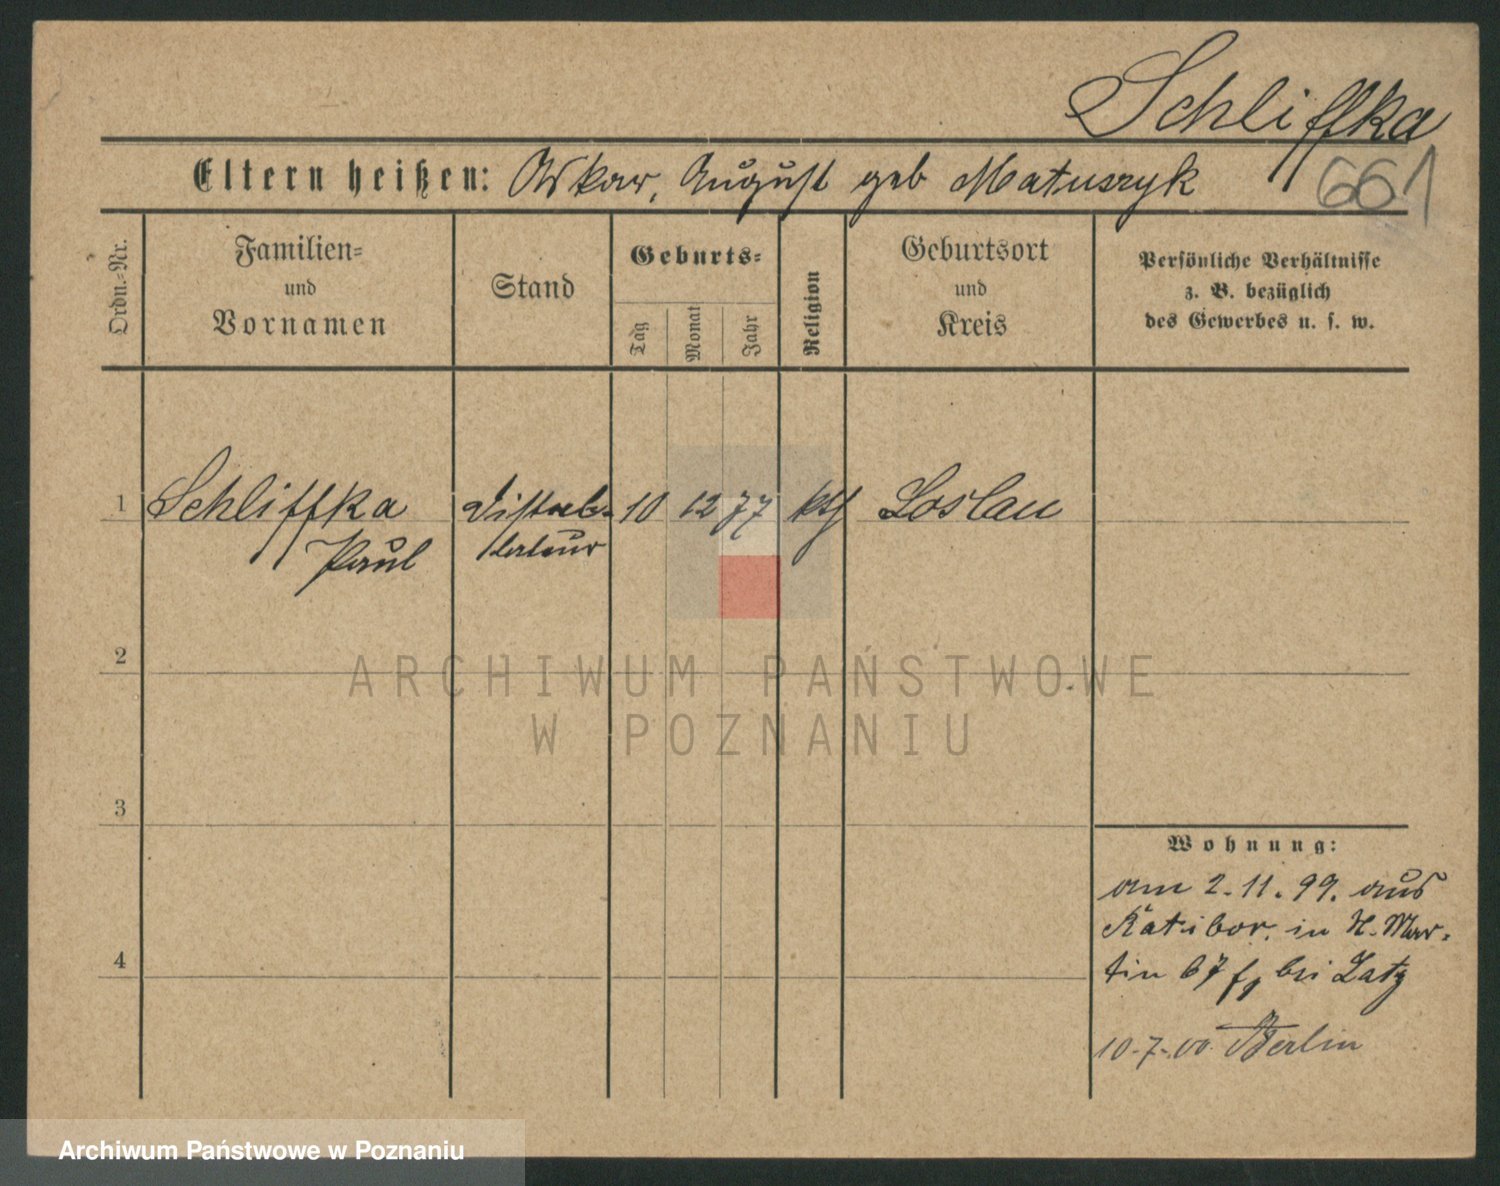 Schliffka
661
Eltern heißen: Oskar, August geb Matuszyk
Ordn.-Nr.
Familien- und Vornamen
Stand
Geburts-
Tag
Monat
Jahr
Religion
Geburtsort und Kreis
Persönliche Verhältnisse
z. B. bezüglich
des Gewerbes u. s. w.
1 Schliffka 10 12 77 kth Loslau
Paul
2
3
4
Wohnung:
am 2.11.99. aus
Ratibor. in St. Mar-
tin 67 bei Latz
10.7.00. Berlin
ARCHIWUM PAŃSTWOWE
W POZNANIU
Archiwum Państwowe w Poznaniu